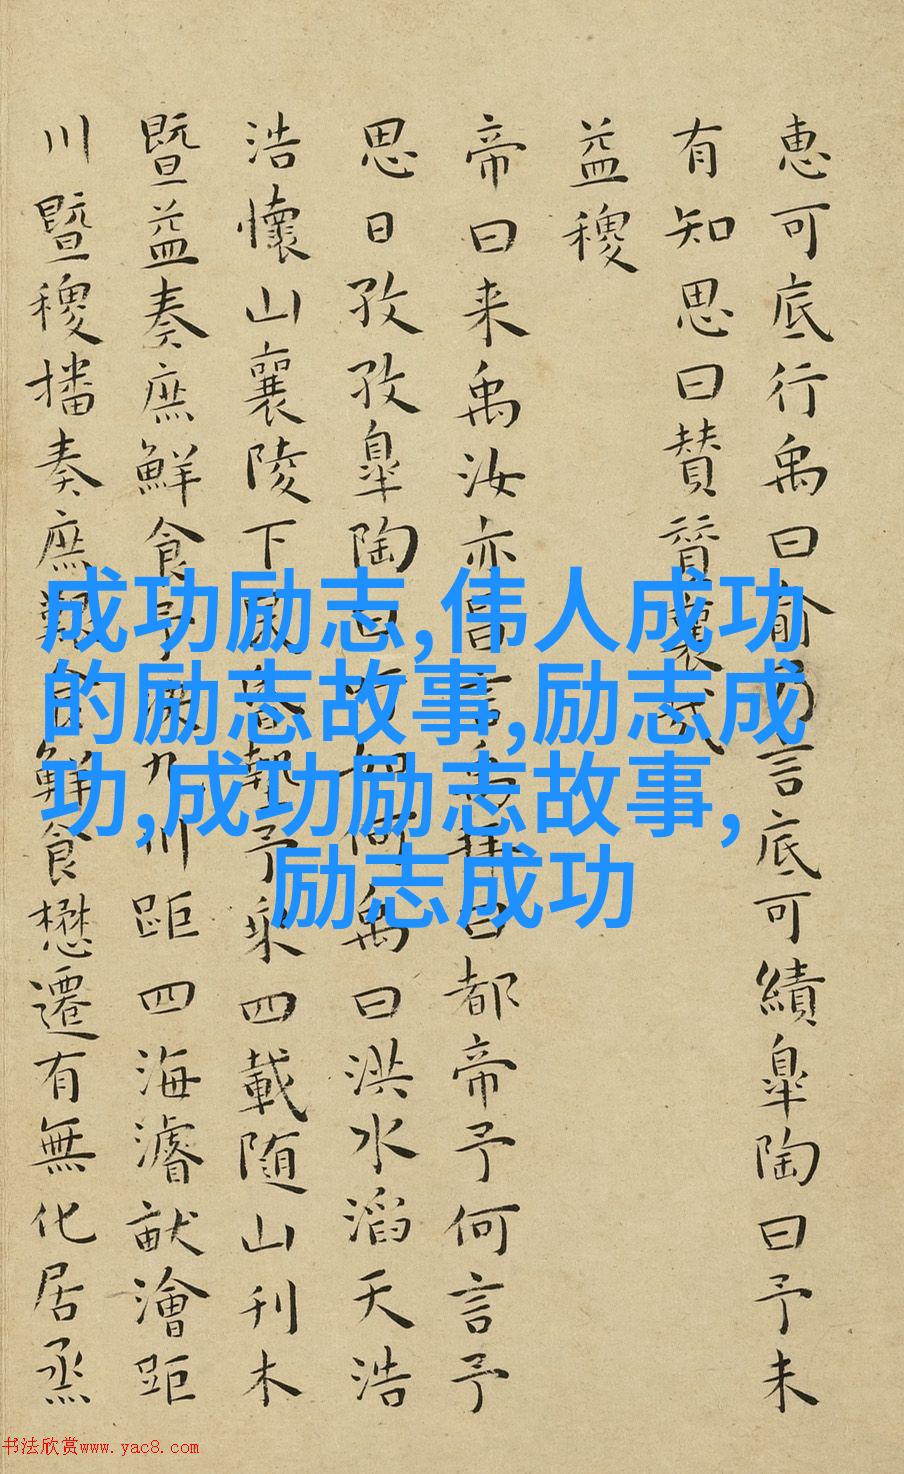 恵可底行禹曰俞乃言底可績皐陶曰予未
有知思曰賛賛襄哉
益稷
帝曰来禹汝亦昌言禹拜曰都帝予何言予
思日孜孜皐陶曰吁如何禹曰洪水滔天浩
浩懷山襄陵下民昏墊予乘四載随山刊木
暨益奏庶鮮食予決九川距四海濬畎澮距
川暨稷播奏庶艱食鮮食懋遷有無化居烝
成功励志,伟人成功
的励志故事,励志成
功,成功励志故事,
励志成功
书法欣赏www.yac8.com